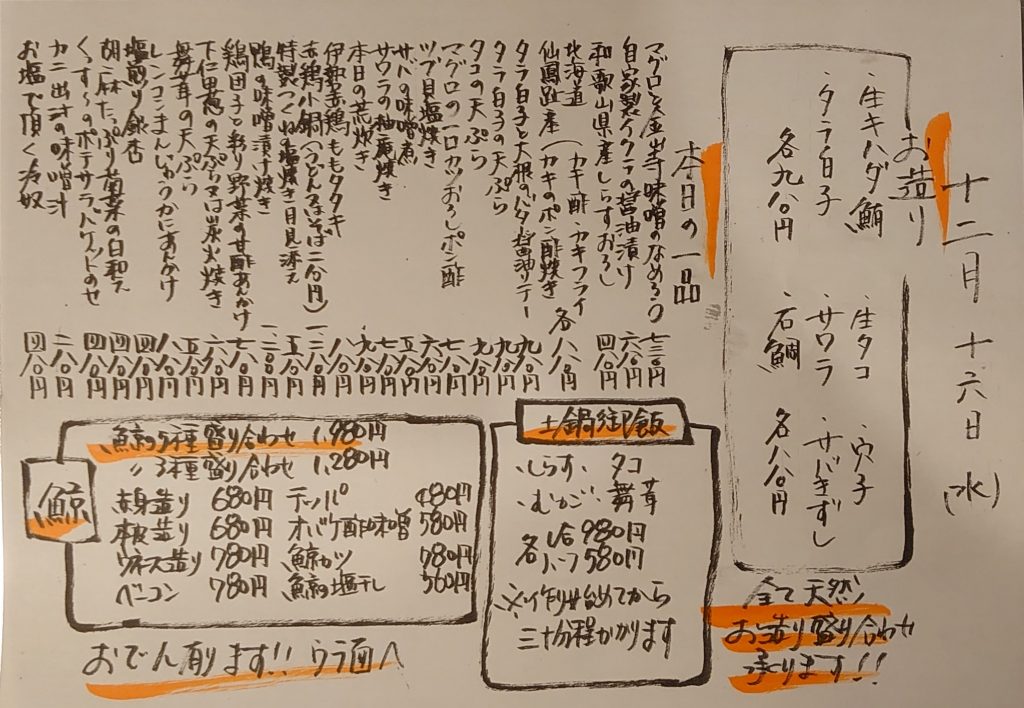 十二月十六日(水)
お造り
・生キハダ鮪 ・生タコ ・穴子
・タラ白子 ・サワラ ・サバきずし
各九八〇円 ・石鯛 各八八〇円
全て天然
お造り盛り合わせ
承ります!!
本日の一品
マグロと金山寺味噌のなめろう 七三〇円
自家製イクラの醤油漬け 六八〇円
和歌山県産しらすおろし 四八〇円
北海道 (カキ酢 カキフライ
仙鳳趾産 (カキのポン酢焼き 各八八〇円
タラ白子と大根のバター醤油ソテー 九八〇円
タラ白子の天ぷら 九八〇円
タコの天ぷら 九八〇円
マグロの一口カツおろしポン酢 七八〇円
ツブ貝塩焼き 六八〇円
サバの味噌煮
サワラの柚庵焼き
本日の荒炊き
伊勢赤鶏ももタタキ
赤鶏小鍋(うどん又はそば二分円)
特製つくね塩焼き月見添え
鴨の味噌漬け焼き
鶏団子と彩り野菜の甘酢あんかけ
下仁田葱の天ぷら又は炭火焼き
舞茸の天ぷら
レンコンまんじゅうかにあんかけ
くんすじのポテサラバケットのせ
塩煎り銀杏
胡麻たっぷり菊菜の白和え
カニ出汁の味噌汁 二八〇円
お塩で頂く冷奴 四八〇円
土鍋御飯
・しらす ・タコ
・むかご ・舞茸
各 1合980円
ハーフ580円
※作り始めてから
三十分程かかります
鯨
鯨の5種盛り合わせ 1,980円
〃 3種盛り合わせ 1,280円
赤身造り 680円 テッパ 480円
本皮造り 680円 オバケ酢味噌 580円
ウネス造り 780円 鯨カツ 780円
ベーコン 780円 鯨塩干し 560円
おでん有ります!! ウラ面へ